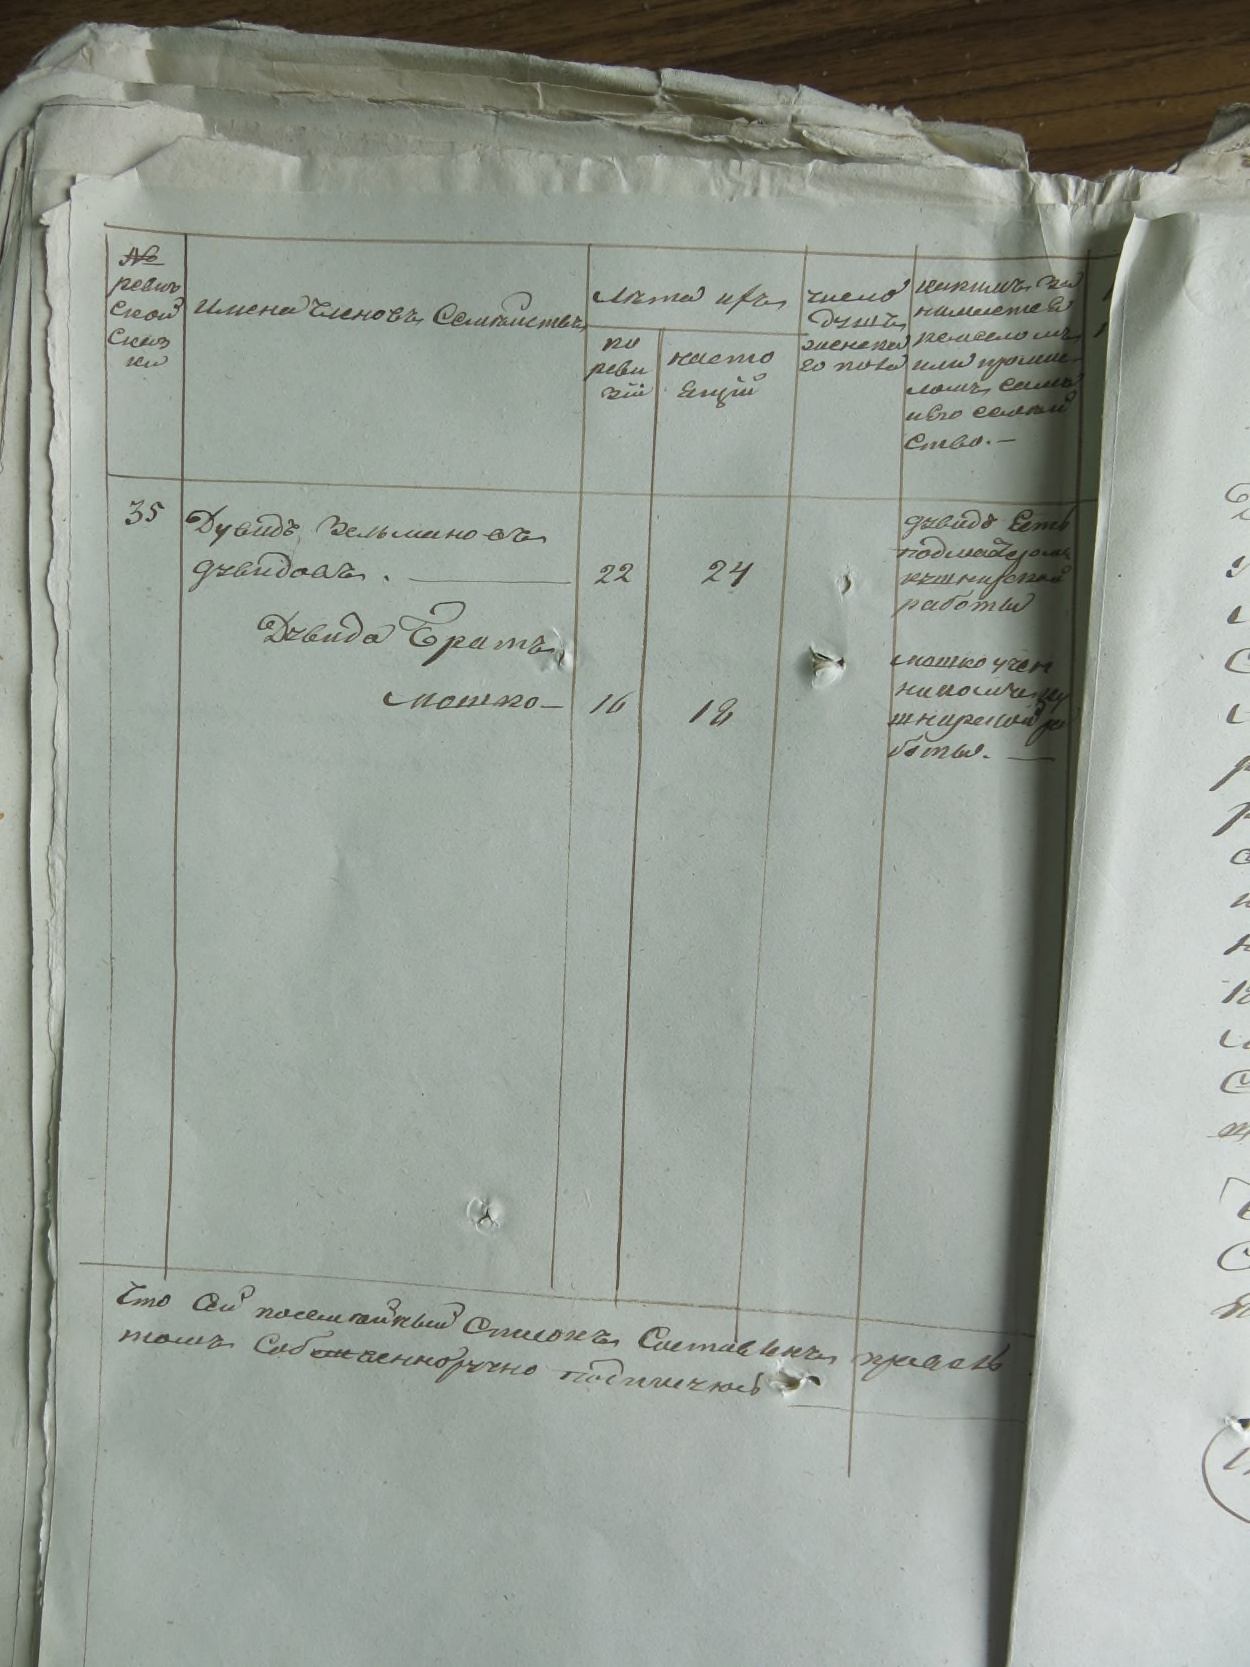 №
ревиз
ской
сказ
ки
Имена Членовъ Семействъ
Лета ихъ
по
реви
зіи
насто
ящій
число
душъ
женска
го пола
какимъ за
нимается
ремесломъ
или промыс
ломъ самъ
и его семей
ство.—
35
Дувидъ Зельмановъ
Дувидовъ. —
22
24
дувидъ Есть
подмастеромъ
кушнирской
работы
Дувида Братъ
Мошко —
16
18
мошко учен
никомъ ку
шнирской ра
боты. —
Что Сей посемейный Списокъ Составленъ
томъ Собственноручно подписуюсь